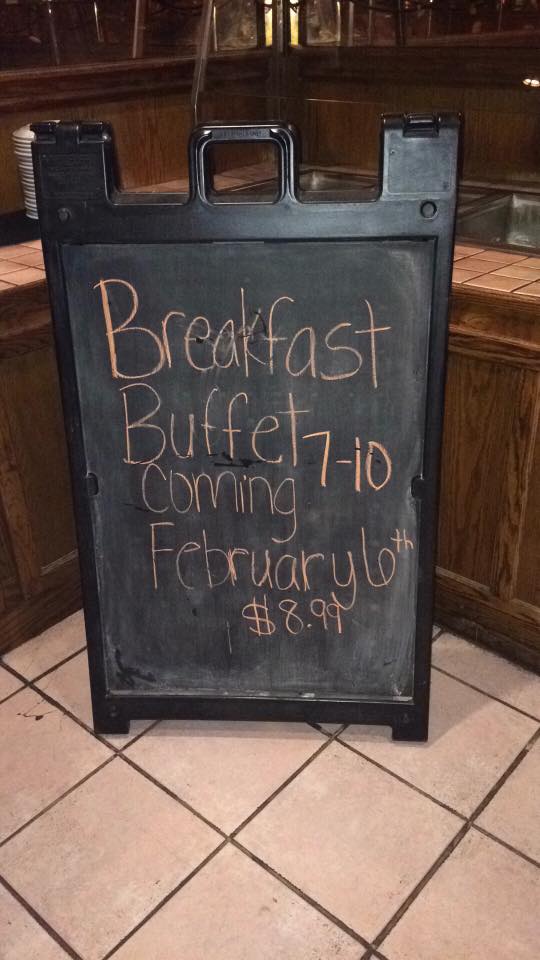 Breakfast
Buffet 7-10
coming
February 6th
$8.99